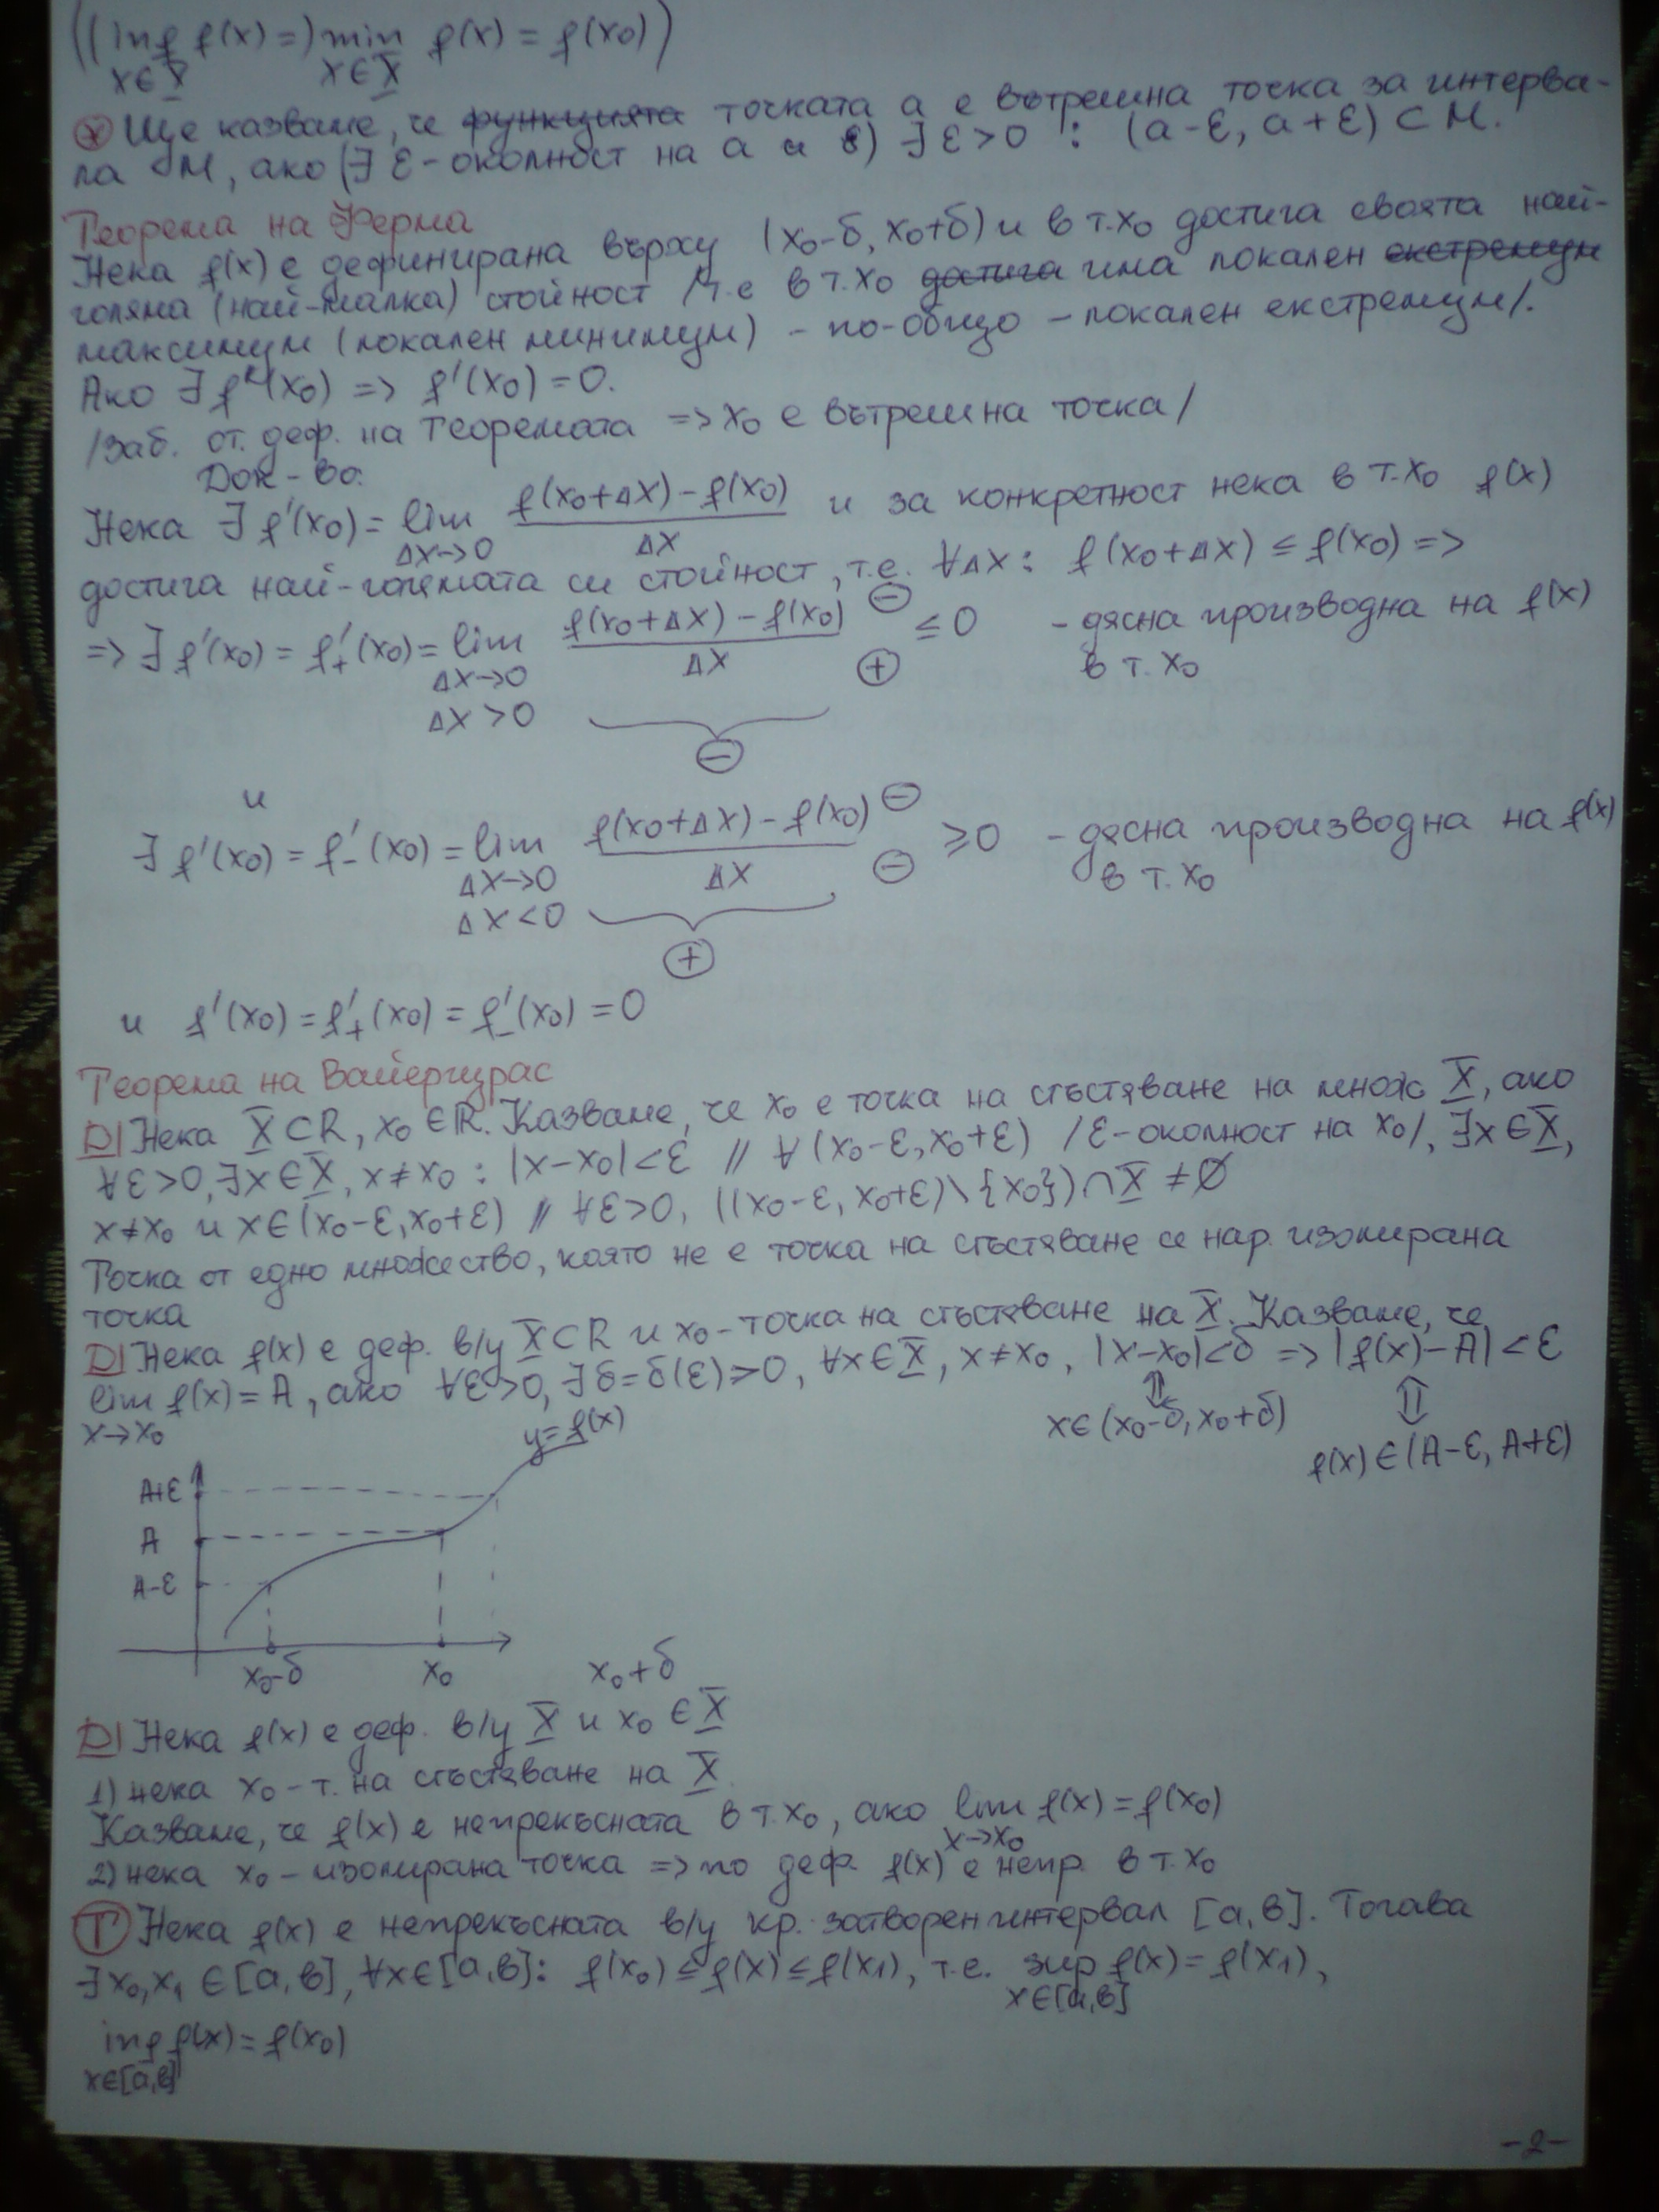 ((inf f(x) =) min f(x) = f(x₀))
x∈X x∈X
⊛ Ще казваме, че функцията точката a е вътрешна точка за интерва-
ла M, ако (∃ ε-околност на a и ) ∃ ε>0 : (a-ε, a+ε) ⊂ M.
Теорема на Ферма
Нека f(x) е дефинирана върху (x₀-δ, x₀+δ) и в т.x₀ достига своята най-
голяма (най-малка) стойност /т.е в т.x₀ достига има локален екстремум
максимум (локален минимум) - по-общо - локален екстремум/.
Ако ∃ f'(x₀) => f'(x₀) = 0.
/Заб. от деф. на теоремата => x₀ е вътрешна точка/
Док-во:
Нека ∃ f'(x₀) = lim f(x₀+Δx) - f(x₀) и за конкретност нека в т.x₀ f(x)
Δx→0 Δx
достига най-голямата си стойност, т.е. ∀Δx: f(x₀+Δx) ≤ f(x₀) =>
=> ∃ f'(x₀) = f'₊(x₀) = lim f(x₀+Δx) - f(x₀) ⊖ ≤ 0 - дясна производна на f(x)
Δx→0 Δx ⊕ в т. x₀
Δx > 0
⊖
и
∃ f'(x₀) = f'₋(x₀) = lim f(x₀+Δx) - f(x₀) ⊖ ≥ 0 - дясна производна на f(x)
Δx→0 Δx ⊖ в т. x₀
Δx < 0
⊕
и f'(x₀) = f'₊(x₀) = f'₋(x₀) = 0
Теорема на Вайерщрас
D| Нека X⊂R, x₀∈R. Казваме, че x₀ е точка на сгъстяване на множ X, ако
∀ε>0, ∃x∈X, x≠x₀ : |x-x₀|<ε // ∀(x₀-ε, x₀+ε) /ε-околност на x₀/, ∃x∈X,
x≠x₀ и x∈(x₀-ε, x₀+ε) // ∀ε>0, ((x₀-ε, x₀+ε)\{x₀})∩X ≠ ∅
Точка от едно множество, която не е точка на сгъстяване се нар. изолирана
точка
D| Нека f(x) е деф. в/у X⊂R и x₀-точка на сгъстяване на X. Казваме, че
lim f(x) = A, ако ∀ε>0, ∃δ=δ(ε)>0, ∀x∈X, x≠x₀, |x-x₀|<δ => |f(x)-A|<ε
x→x₀ ⇕ ⇕
x∈(x₀-δ, x₀+δ)
f(x)∈(A-ε, A+ε)
y=f(x)
A+ε
A
A-ε
x₀-δ x₀ x₀+δ
D| Нека f(x) е деф. в/у X и x₀ ∈ X
1) нека x₀-т. на сгъстяване на X
Казваме, че f(x) е непрекъсната в т.x₀, ако lim f(x) = f(x₀)
x→x₀
2) нека x₀-изолирана точка => по деф. f(x) е непр. в т.x₀
Ⓣ Нека f(x) е непрекъсната в/у кр. затворен интервал [a,в]. Тогава
∃x₀,x₁ ∈[a,в], ∀x∈[a,в]: f(x₀) ≤ f(x) ≤ f(x₁), т.е. sup f(x) = f(x₁),
x∈[a,в]
inf f(x) = f(x₀)
x∈[a,в]
-2-